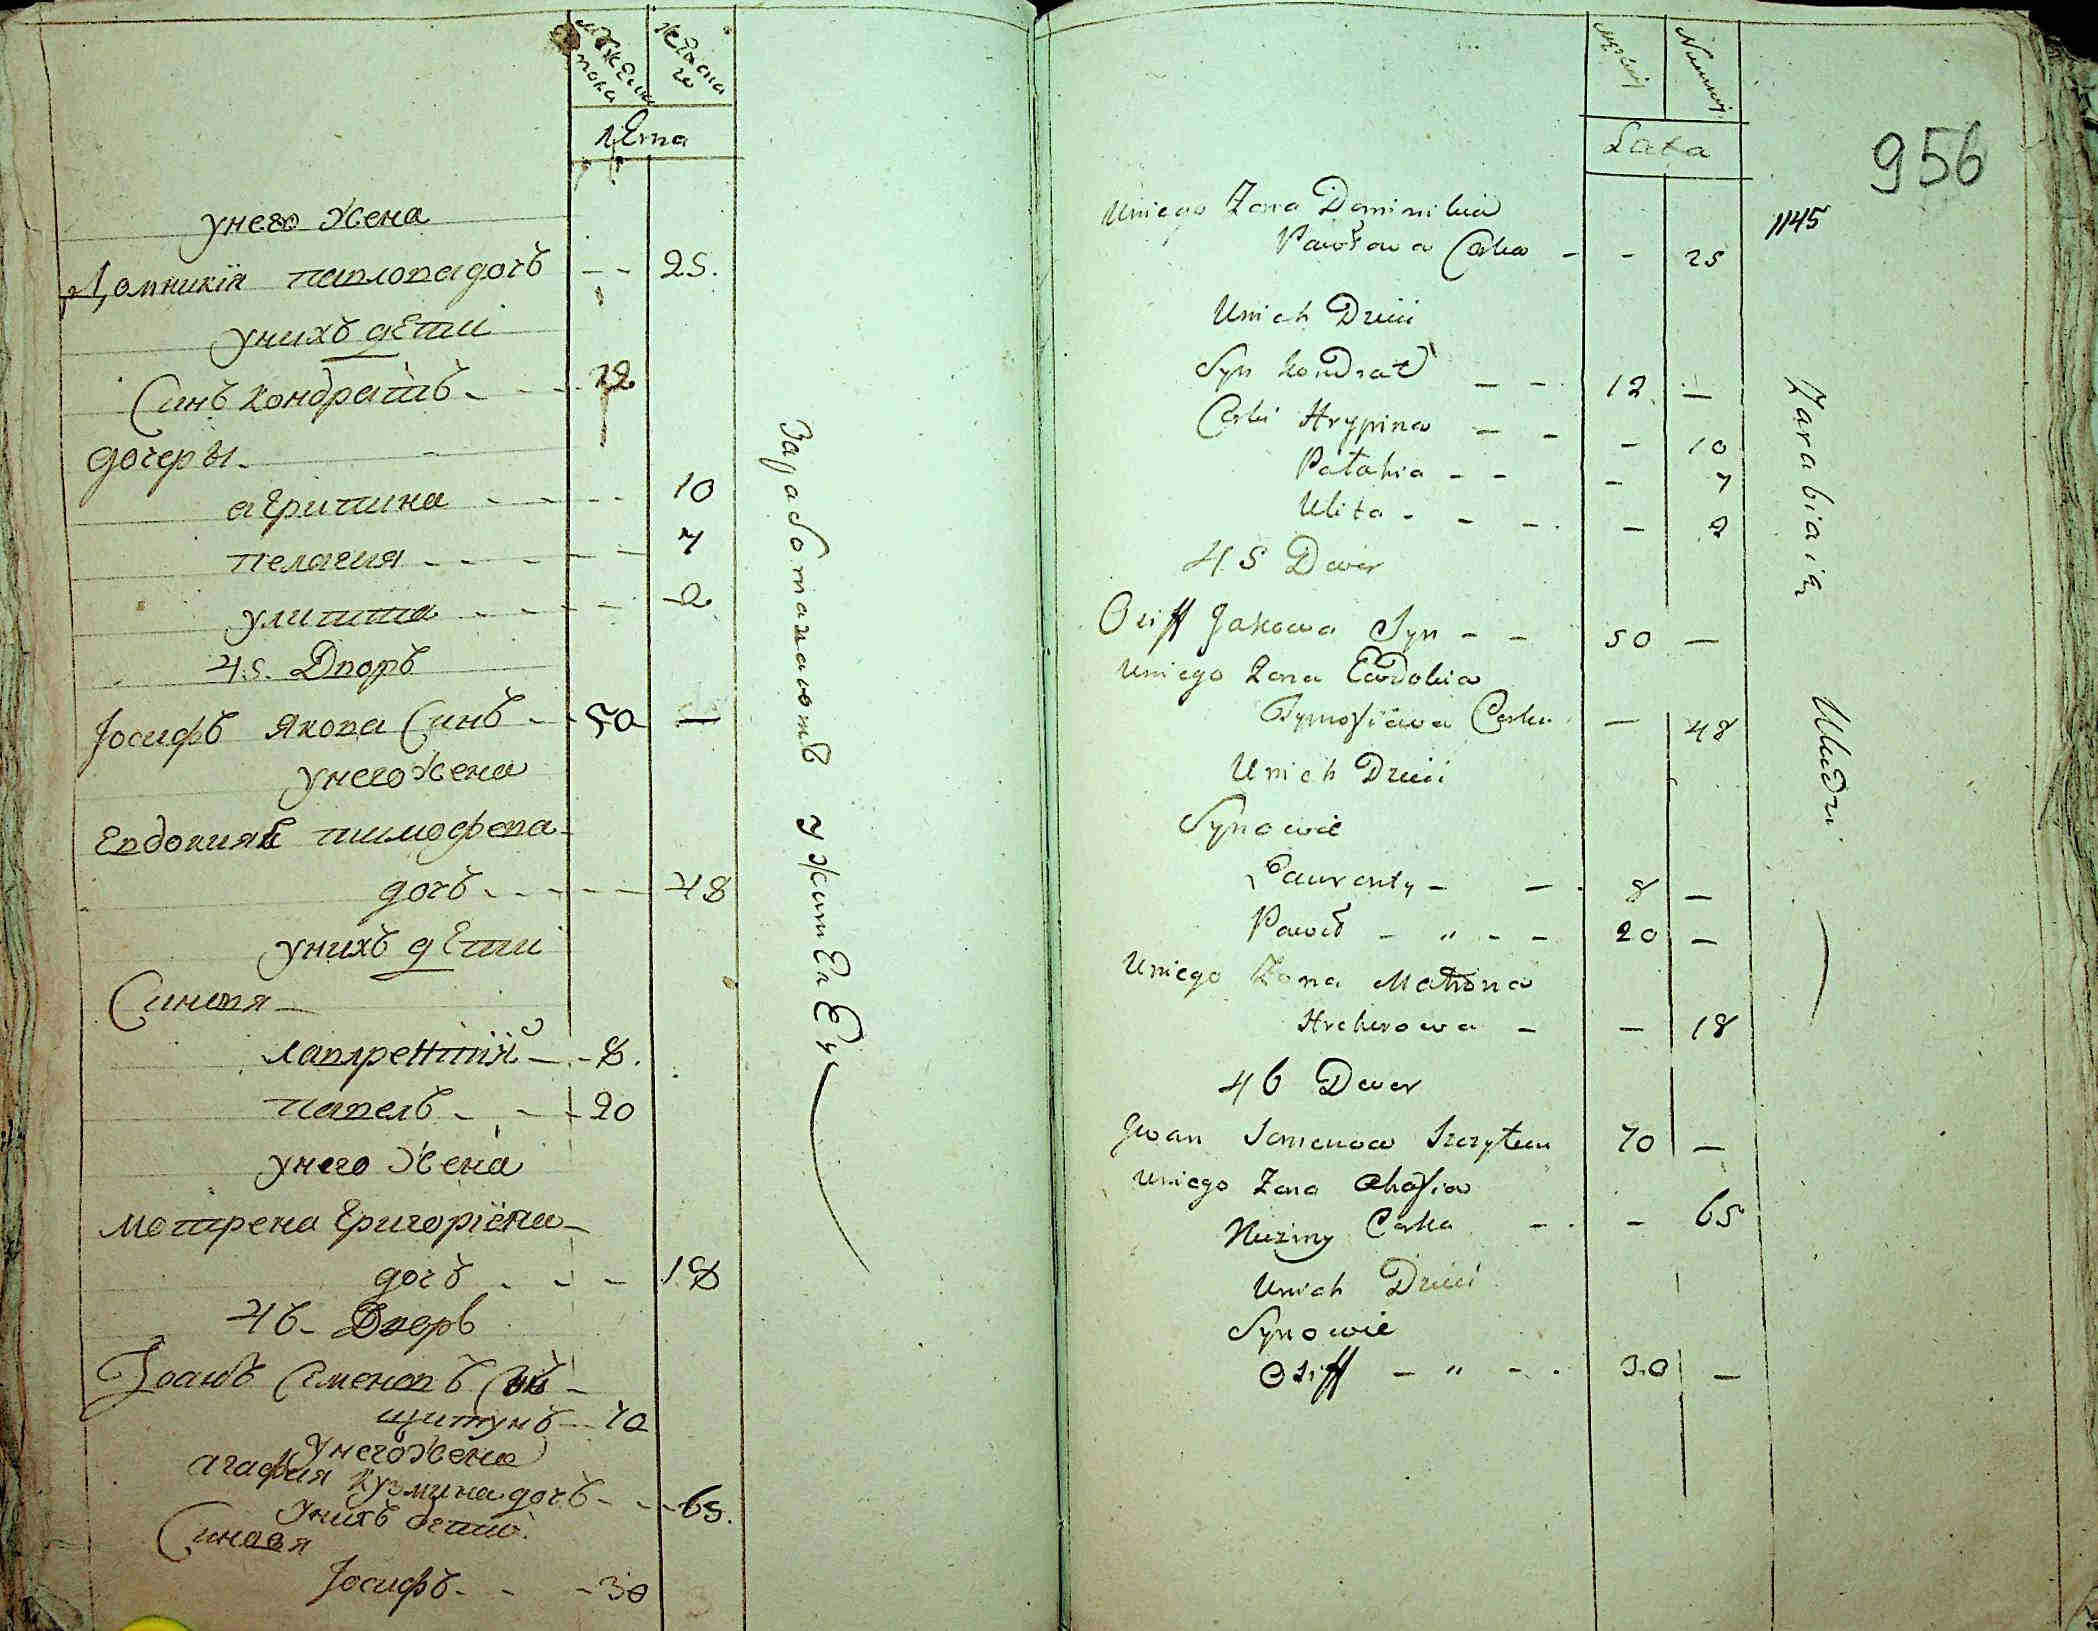 мужеска пола
женска го
лѣта
у него жена
Домникїя павлова дочь -- 25.
у нихъ дѣти
Синъ кондратъ - - - 12
дочеры -
агрипина - - - - 10
пелагия - - - - - 7
улитта - - - - 2
45. Дворъ
Іосифъ Якова Синъ - - 50 —
у него жена
Евдокия тимофева
дочь - - - - - 48
у нихъ дѣти
Синовя -
лаврентий - - 8.
павелъ - - - 20
у него жена
мотрена Григориева -
дочь - - - 18
46 - Дворъ
Іоанъ Семеновъ Синъ -
щитунъ - 70
у него жена
агафия кузмина дочъ - - - 65.
у нихъ дети
Синовя
Іосифъ - - - 30
Заработаваютъ у жителей
Lata
956
1145
Uniego Zona Dominikia
Pawłowa Corka - - 25
Unich Dzieci
Syn Kondrat - - 12 —
Corki Hrypina - - - 10
Pałahia - - - 7
Ulita - - - - 2
45 Dwor
Osiff Jakowa Syn - - 50 —
Uniego Zona Ewdokia
Tymofiiowa Corka — 48
Unich Dzieci
Synowie
Laurenty - - 8 —
Paweł - " - - 20 —
Uniego Zona Matrona
Hrehorowa - — 18
46 Dwor
Jwan Semenow Szczytun 70 —
Uniego Zona Ahafia
Kuzmy Corka - - - 65
Unich Dzieci
Synowie
Osiff - " - - 30 —
Zarabiaią Uludzi